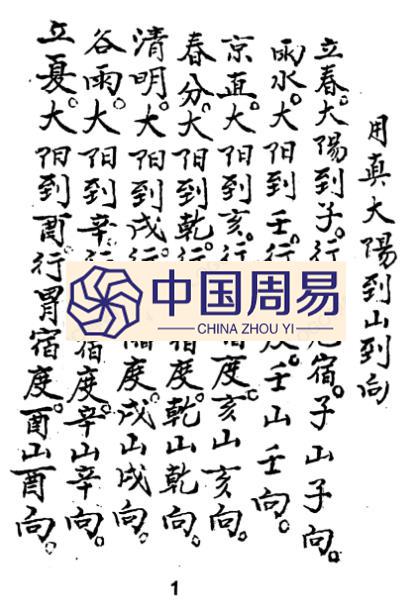 用真大陽到山到向
立春。大陽到子。行宿。子山子向。
雨水。大阳到壬。行度。壬山壬向。
京直。大阳到亥。行度。亥山亥向。
春分。大阳到乾。行宿度。乾山乾向。
清明。大阳到戌。行度。戌山戌向。
谷雨。大阳到辛。行宿度。辛山辛向。
立夏。大阳到酉。行胃宿度。酉山酉向。
中国周易
CHINA ZHOU YI
1